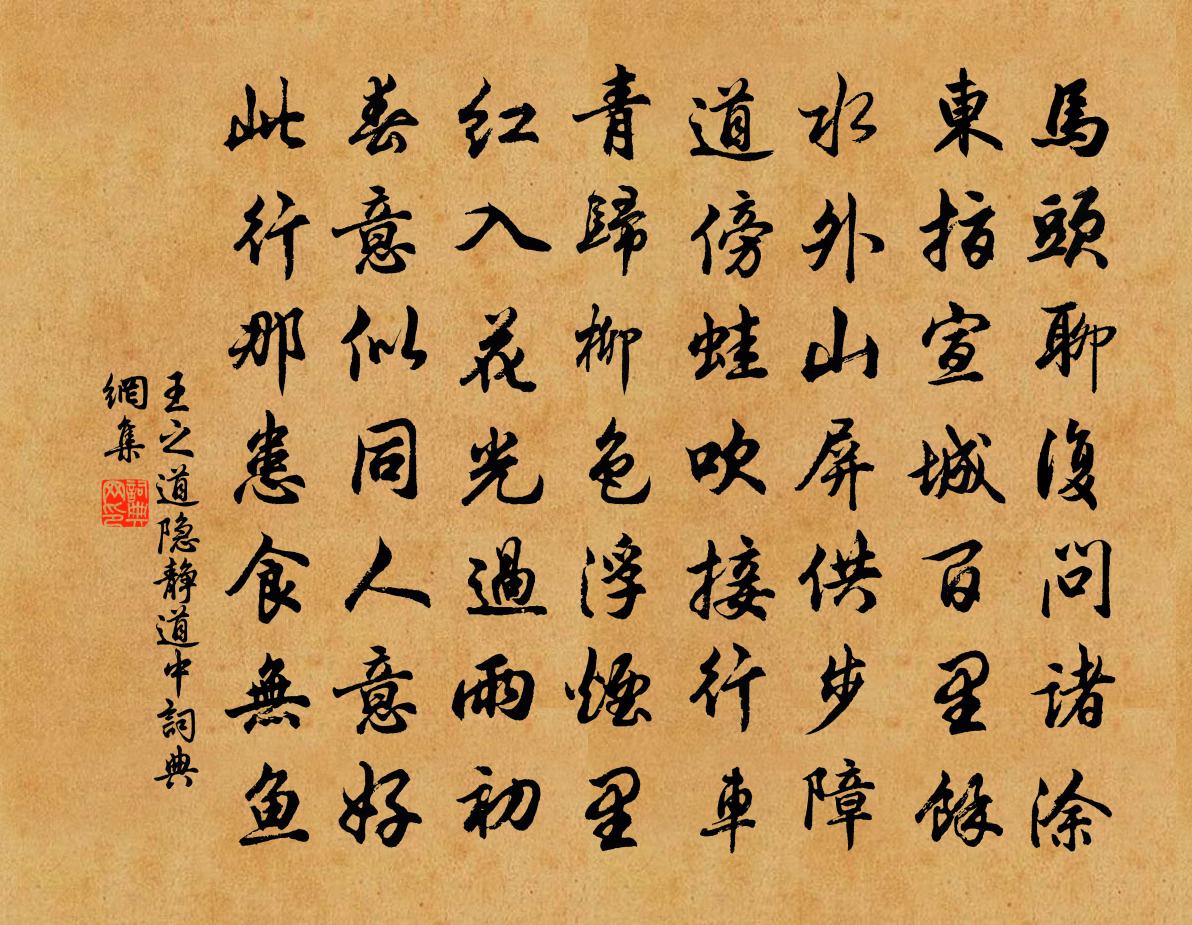 馬頭聊復問諸涂
東指宣城百里餘
水外山屏供步障
道傍蛙吹接行車
青歸柳色浮煙里
紅入花光過雨初
春意似同人意好
此行那患食無魚
王之道隐靜道中詞典
網集
詞典
网印